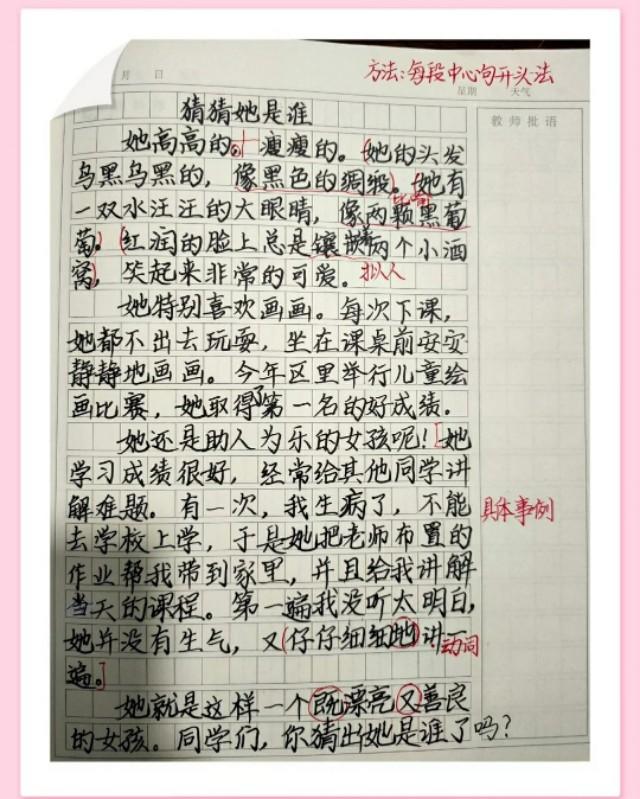 方法:每段中心句开头法
月 日 星期 天气
教师批语
猜猜她是谁
她高高的。瘦瘦的。她的头发
乌黑乌黑的,像黑色的绸缎。她有
一双水汪汪的大眼睛,像两颗黑葡
比喻
萄。红润的脸上总是镶嵌着两个小酒
窝,笑起来非常的可爱。拟人
她特别喜欢画画。每次下课,
她都不出去玩耍,坐在课桌前安安
静静地画画。今年区里举行儿童绘
画比赛,她取得了第一名的好成绩。
她还是助人为乐的女孩呢!她
学习成绩很好,经常给其他同学讲
解难题。有一次,我生病了,不能
具体事例
去学校上学,于是她把老师布置的
作业帮我带到家里,并且给我讲解
当天的课程。第一遍我没听太明白,
她并没有生气,又(仔仔细细地)讲一
动词
遍。
她就是这样一个既漂亮又善良
的女孩。同学们,你猜出她是谁了吗?